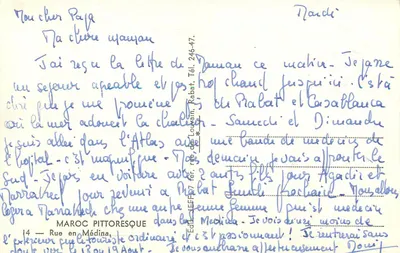 Mardi
Mon cher Papa
Ma chère maman
J'ai reçu la lettre de Maman ce matin - Je passe
un séjour agréable et pas trop chaud jusqu'ici. C'est à
dire que je me promène de Rabat et Casablanca
où la mer adoucit la chaleur - Samedi et Dimanche
je suis allée dans l'Atlas avec une bande de médecins de
l'hôpital - c'est magnifique - Mais demain je vais affronter le
Sud - Je pars en voiture avec 2 autres filles pour Agadir et
Marrakech pour revenir à Rabat Lundi prochain - Nous
à Marrakech chez une autre femme médecin
dans la Médina - Je vois moins de
que le touriste ordinaire et c'est passionnant ! Je rentrerai sans
doute vers le 13 ou 14 Août - Je vous embrasse affectueusement
MAROC PITTORESQUE
14 — Rue en Médina
Rabat. Tél. 246-47.